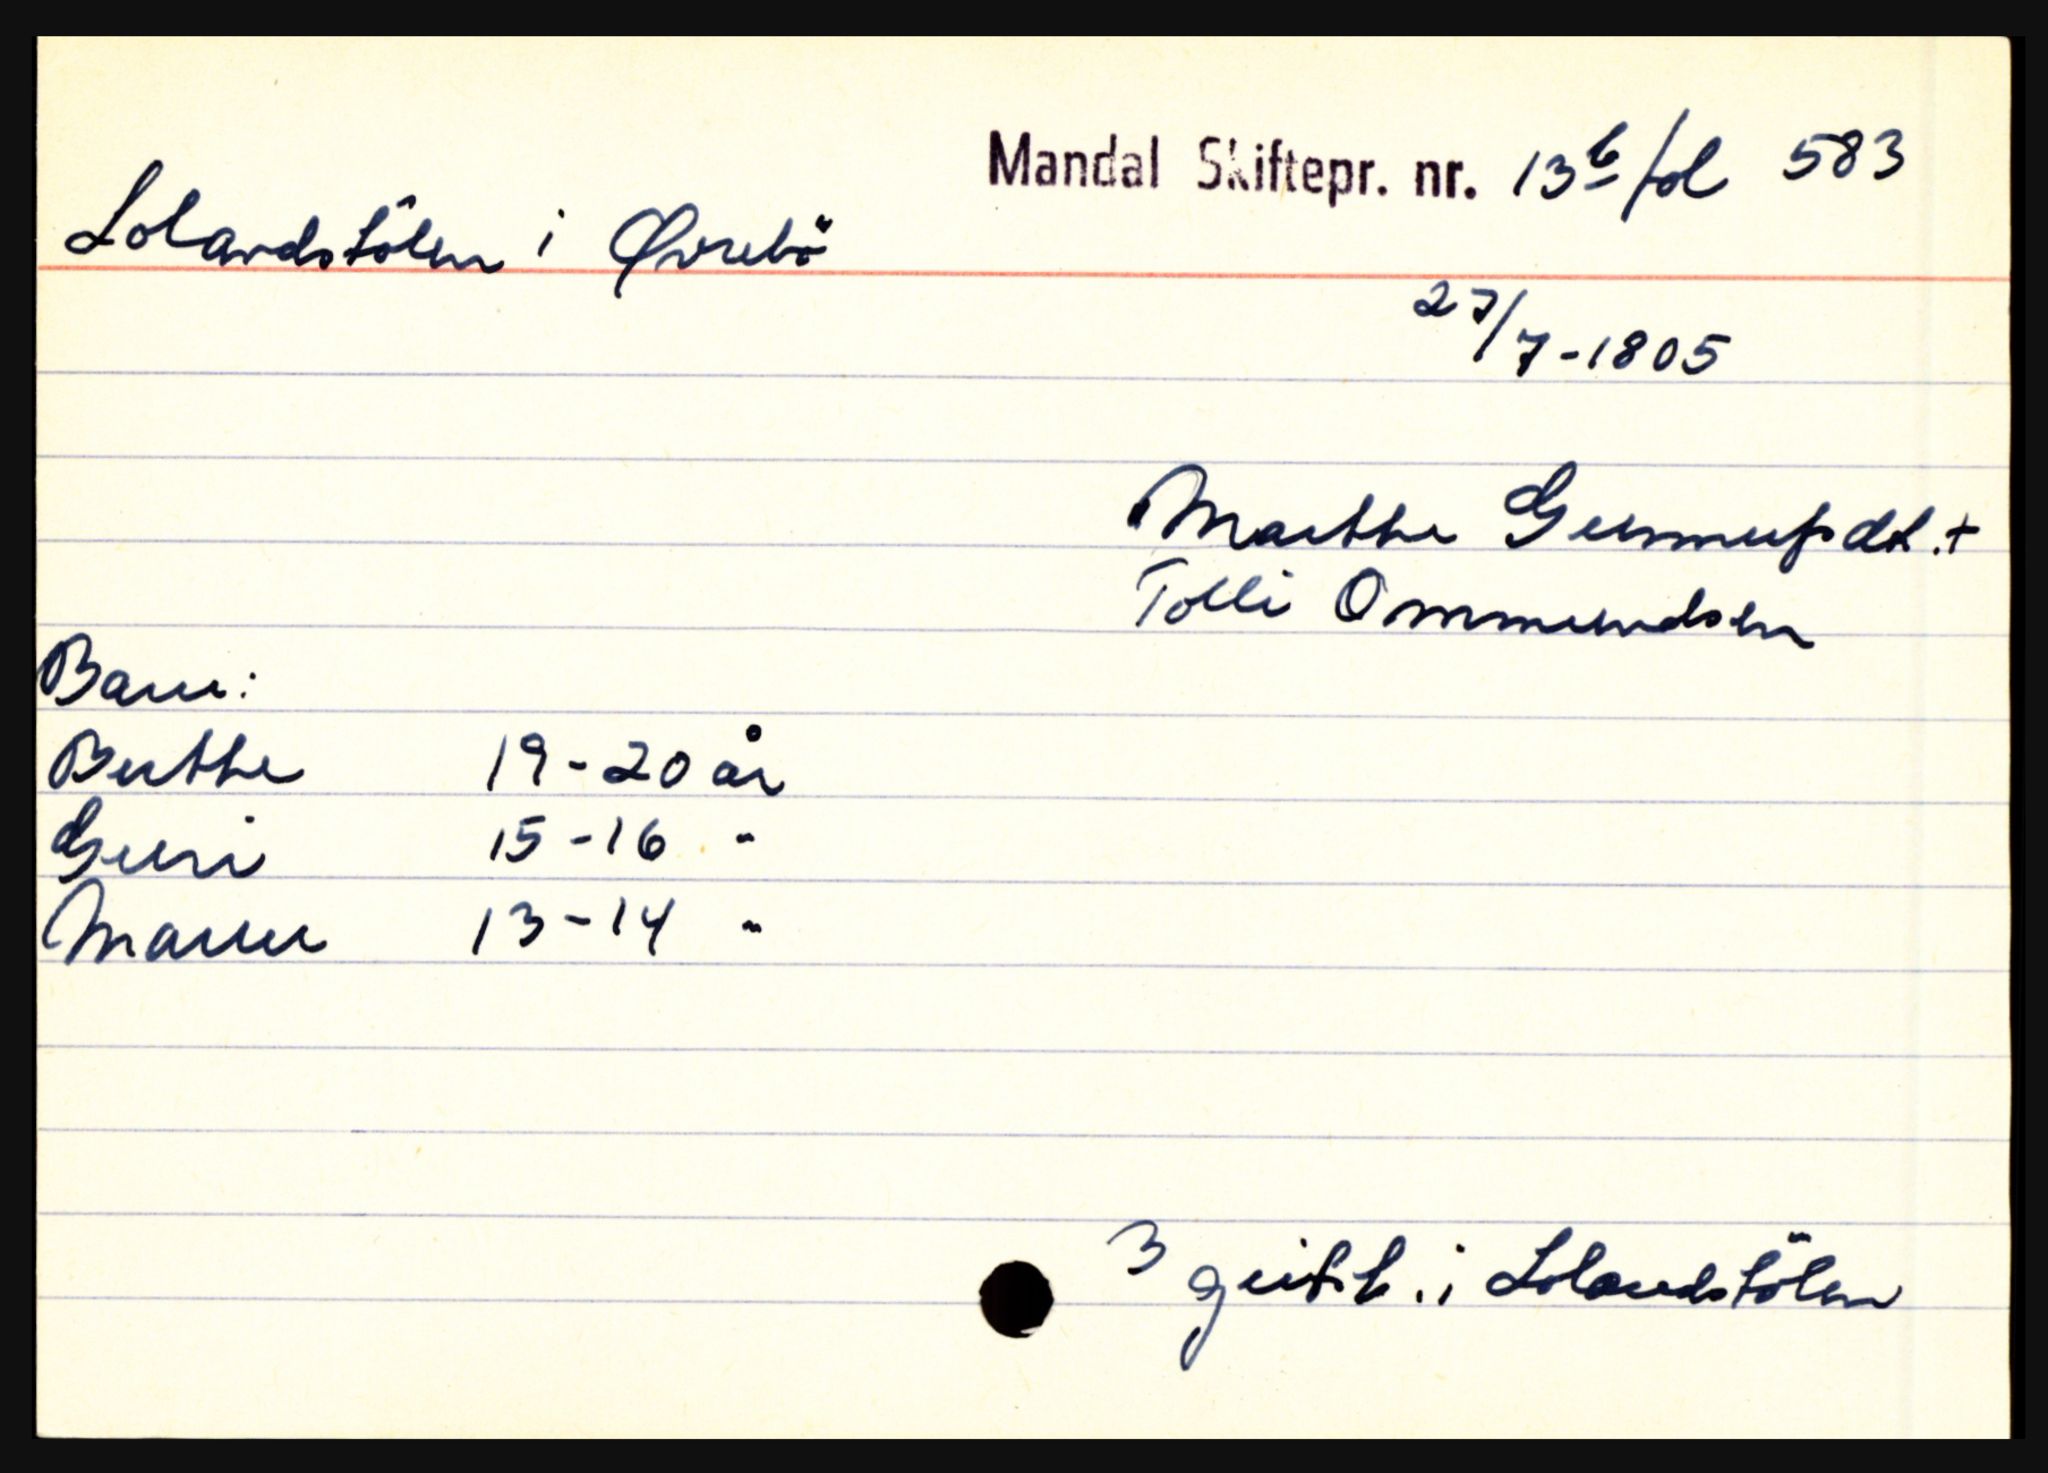 Mandal Skiftepr. nr. 13b fol 583
Lolandstölen i Øvrebö
27/7-1805
Marthe Gunnufsdt. +
Tolli Ommundsen
Barn:
Berthe 19-20 år
Guri 15-16 "
Maren 13-14 "
3 geitsk. i Lolandstölen